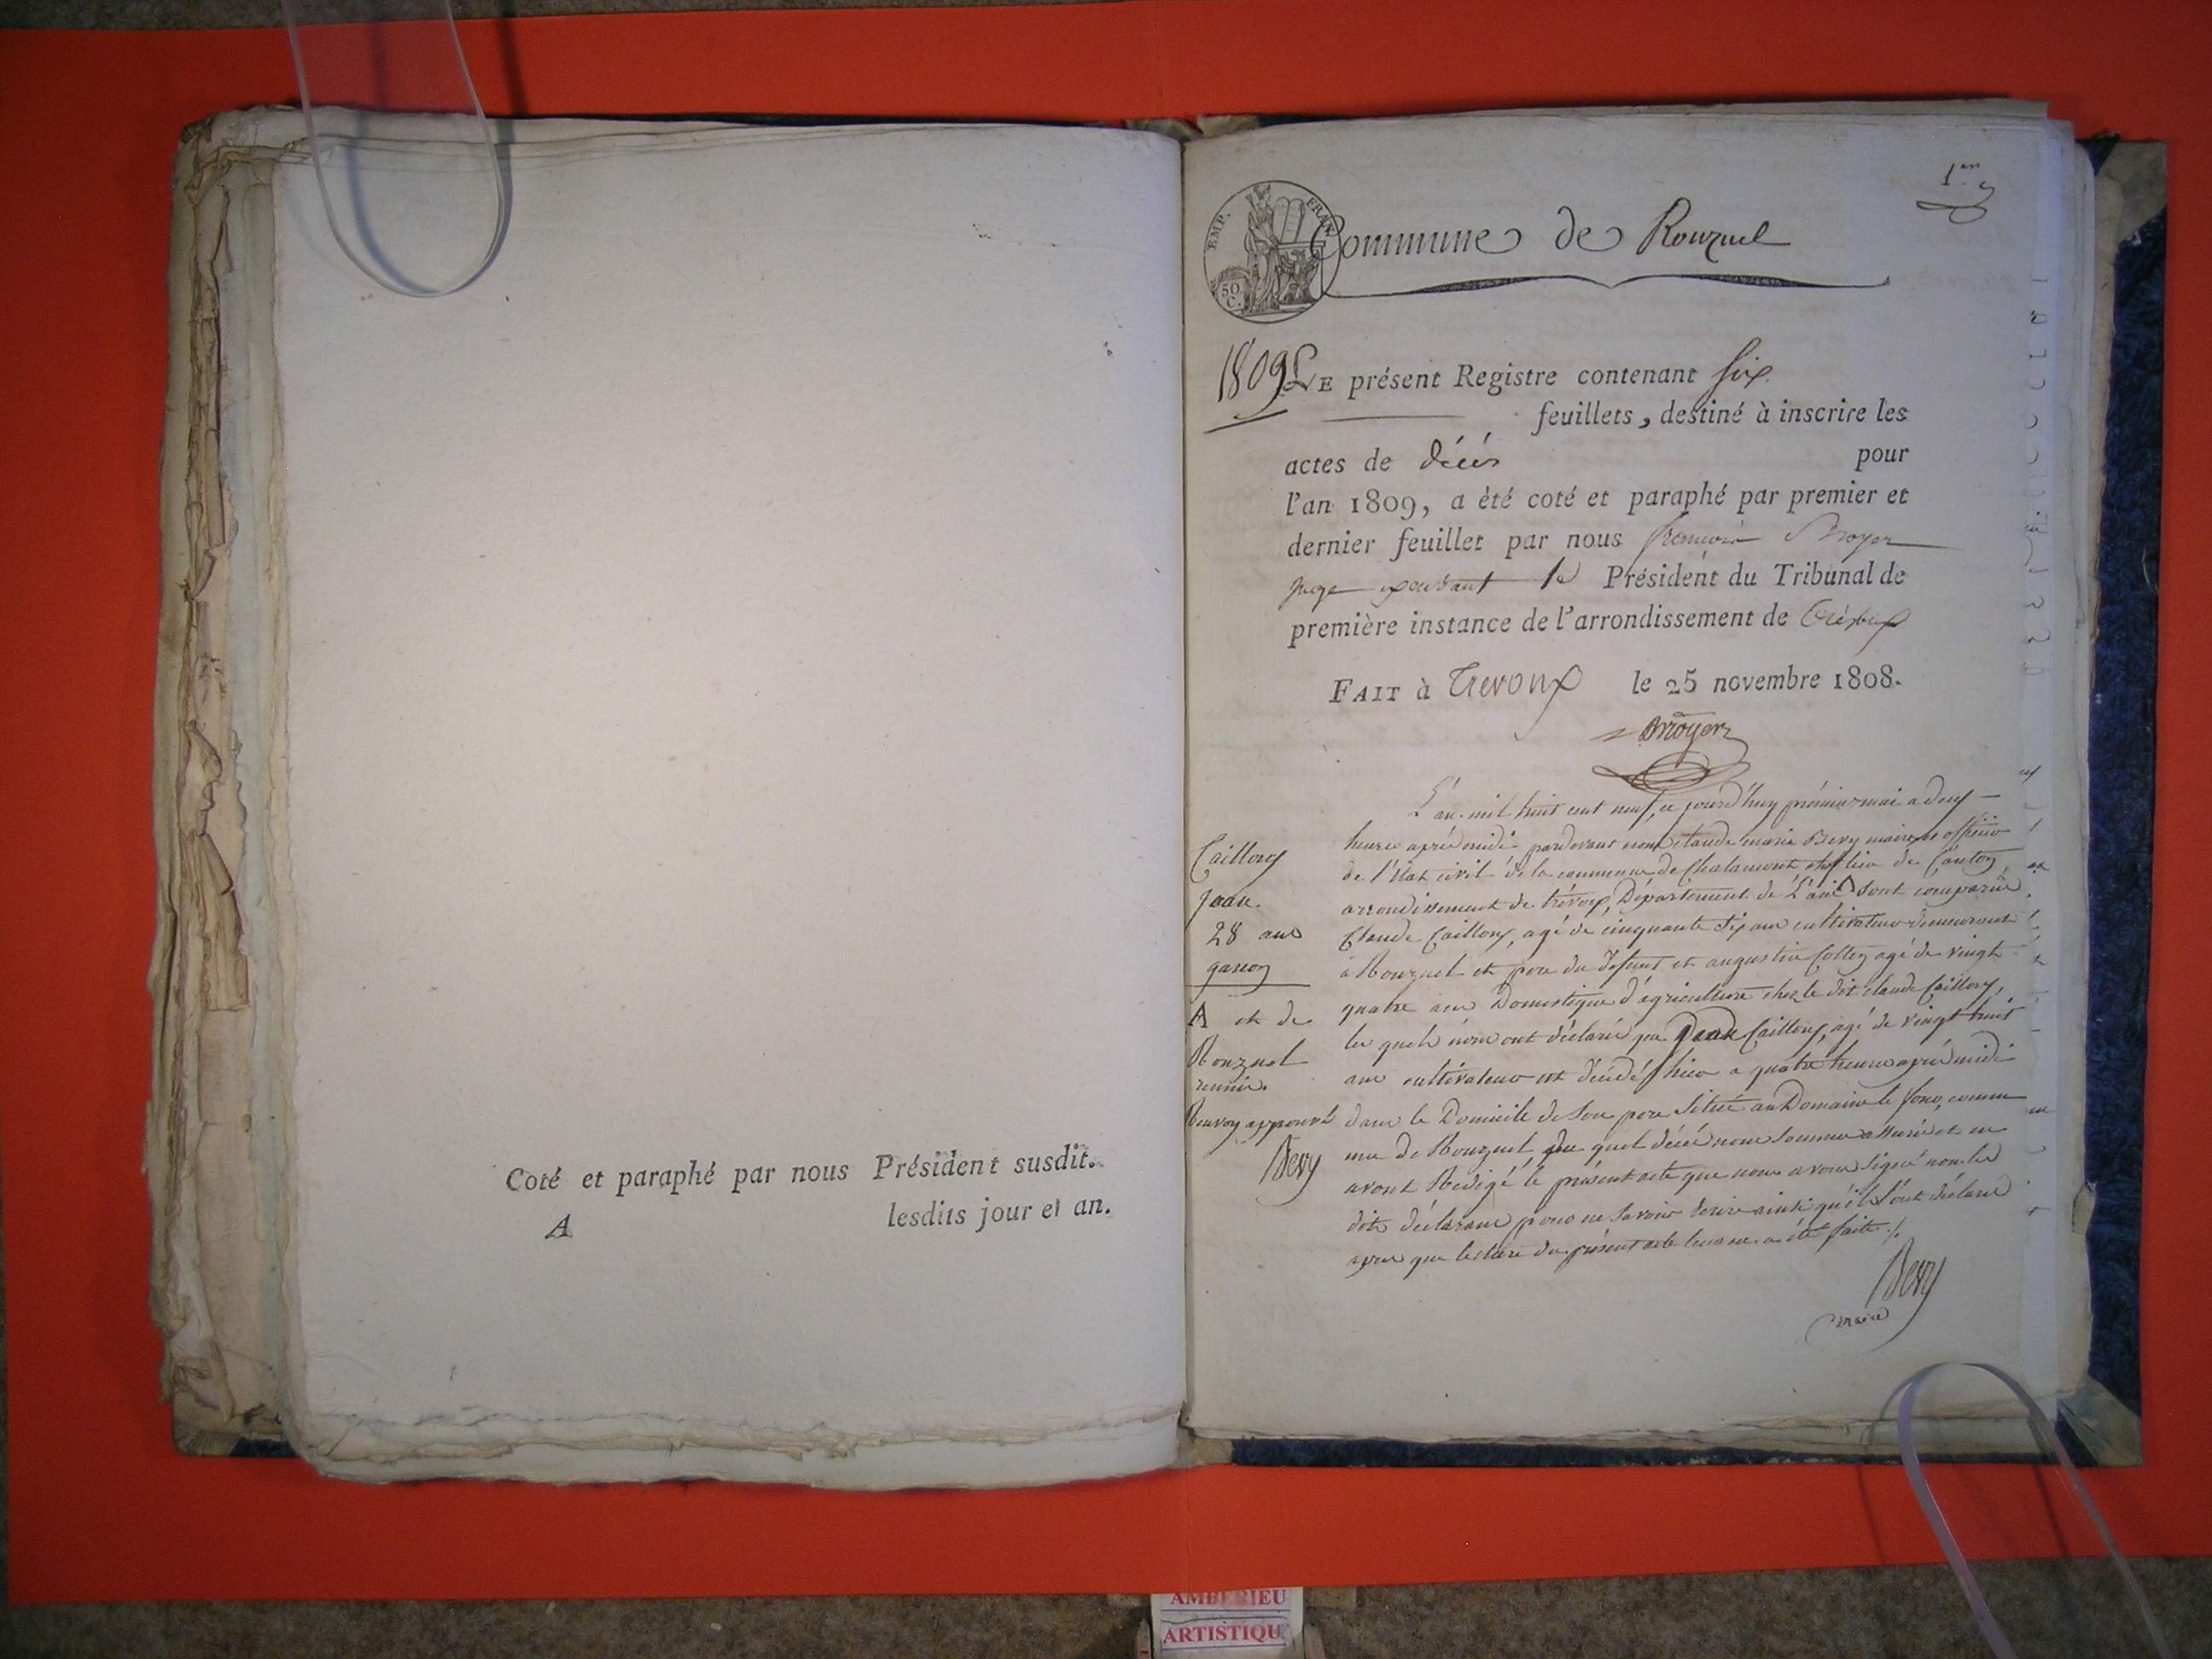 Coté et paraphé par nous Président susdit.
A lesdits jour et an.
1er
EMP. FRAN.
50 C.
Commune de Rouzuel
1809 LE présent Registre contenant six
feuillets, destiné à inscrire les
actes de décès pour
l'an 1809, a èté coté et paraphé par premier et
dernier feuillet par nous Broyer
juge le Président du Tribunal de
première instance de l'arrondissement de Trévoux
FAIT à Trevoux le 25 novembre 1808.
Broyer
L'an mil huit cent neuf, ce jourd'huy prémier mai a deux
heures après midi pardevant nous Claude marie Bevy maire et officier
de l'Etat civil de la commune de Chalamont chef lieu de Canton,
arrondissement de trévoux, Département de L'ain A sont comparus
Claude Caillon, agé de cinquante six ans cultivateur demeurant
à Rouzuel et pere du défunt et augustin Collez agé de vingt
quatre ans Domestique d'agriculture chez le dit claude Caillon,
les quels nous ont déclaré que Jean Caillon, agé de vingt huit
ans cultivateur est décédé hier a quatre heures après midi
dans le Domicile de son pere situé au Domaine le fono, commu
ne de Rouzuel, du quel décés nous sommes assuré et en
avons Redigé le présent acte que nous avons signé non les
dits déclarans pour ne savoir écrire ainsi qu'ils l'ont déclaré
apres que lecture du présent acte leur en a été faite ./.
Bevy
maire
Caillon
Jean.
28 ans
garçon
A et de
Rouzuel
reunie.
Renvoy approuvé
Bevy
AMBERIEU
ARTISTIQU